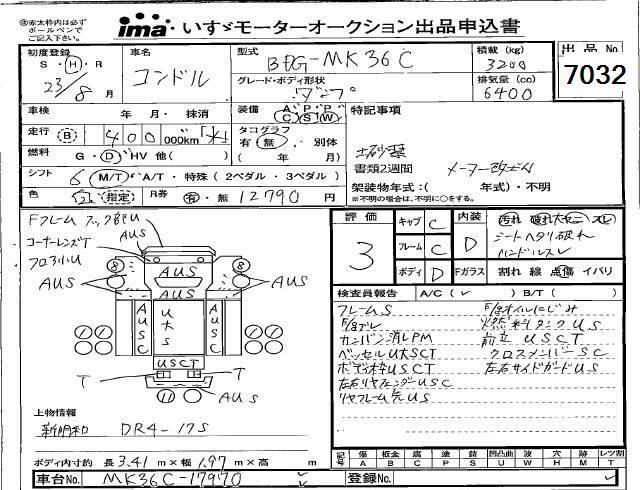 ※赤太枠内は必ず
ボールペンで
ご記入下さい。
ima いすゞモーターオークション出品申込書
初度登録
S・H・R
23/8 月
車名
コンドル
型式
BDG-MK36C
グレード・ボディ形状
ダンプ
積載 (kg)
3200
排気量 (cc)
6400
出品 No
7032
車検 年 月・抹消
装備 A C P S P W
走行 B 400 000km
タコグラフ
有 無 別体
( 年 月)
燃料 G・D・HV 他( )
シフト 6 M/T・A/T・特殊(2ペダル・3ペダル)
色 指定 R券 有・無 12790 円
特記事項
土砂禁
書類2週間 メーター改ざん
架装物年式:( 年式)・不明
※不明の場合は、不明に○をする。
Fフレーム フック部U
AUS
コーナーレンズT
AUS
8 8
AUS AUS AUS
AUSC UtS AUSC
USCT
T T
11 AUS
上物情報
新明和 DR4-17S
ボディ内寸約 長 3.41 m×幅 1.97 m×高 m
車台No. MK36C-17970
登録No.
評価
3
キャブ C
フレーム C
ボディ D
内装 D
汚れ 破れ大 ヤニ スレ
シートヘタリ破れ
ハンドルスレ
Fガラス 割れ 線 点傷 イバリ
検査員報告 A/C( ✓ ) B/T( )
フレームS
カンバン消しPM
ベッセルU大SCT
ボディ枠USCT
左右リヤフェンダーUSC
リヤフレーム先US
F/gオイルにじみ
燃料タンクUS
前立USCT
クロスメンバーSC
左右サイドガードUS
記号 傷 板金 腐 塗 錆 凹凸曲 波 穴 跡 レツ割
A B C P S U W H M T